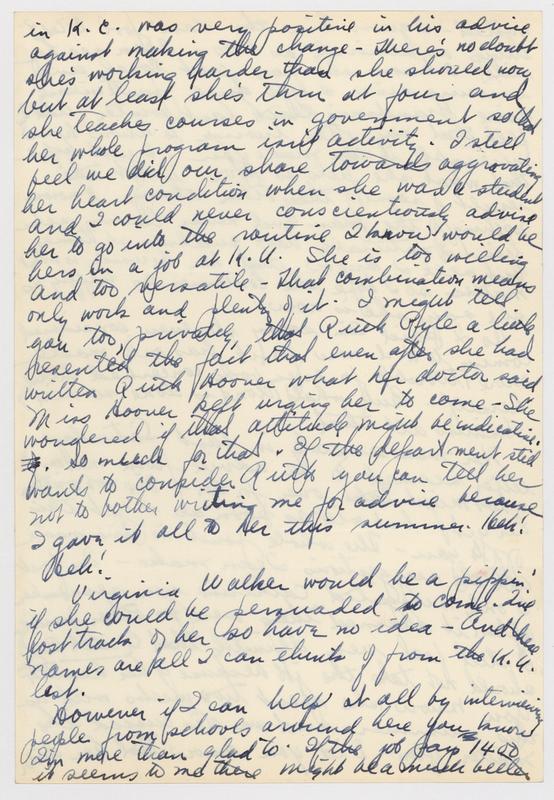 in K.C. was very positive in his advice
against making the change - There's no doubt
she's working harder than she should now
but at least she's thru at four and
she teaches courses in government so that
her whole program isn't activity. I still
feel we did our share towards aggrovating
her heart condition when she was a student
and I could never conscientiously advise
her to go into the routine I know would be
hers in a job at K.U. She is too willing
and too versatile - that combination means
only work and plenty of it. I might tell
you too, privately, that Ruth Pyle a little
resented the fact that even after she had
written Ruth Hoover what her doctor said
Miss Hoover kept urging her to come - She
wondered if that attitude might be indicative.
so much for that. If the department still
wants to consider Ruth you can tell her
not to bother writing me for advice because
I gave it all to her this summer. Heh!
Heh!
Virginia Walker would be a pippin'
if she could be persuaded to come. I've
lost track of her so have no idea - And these
names are all I can think of from the K.U.
list.
However if I can help at all by interviewing
people from schools around here you know
I'm more than glad to. If the job pays 1400
it seems to me there might be a much better